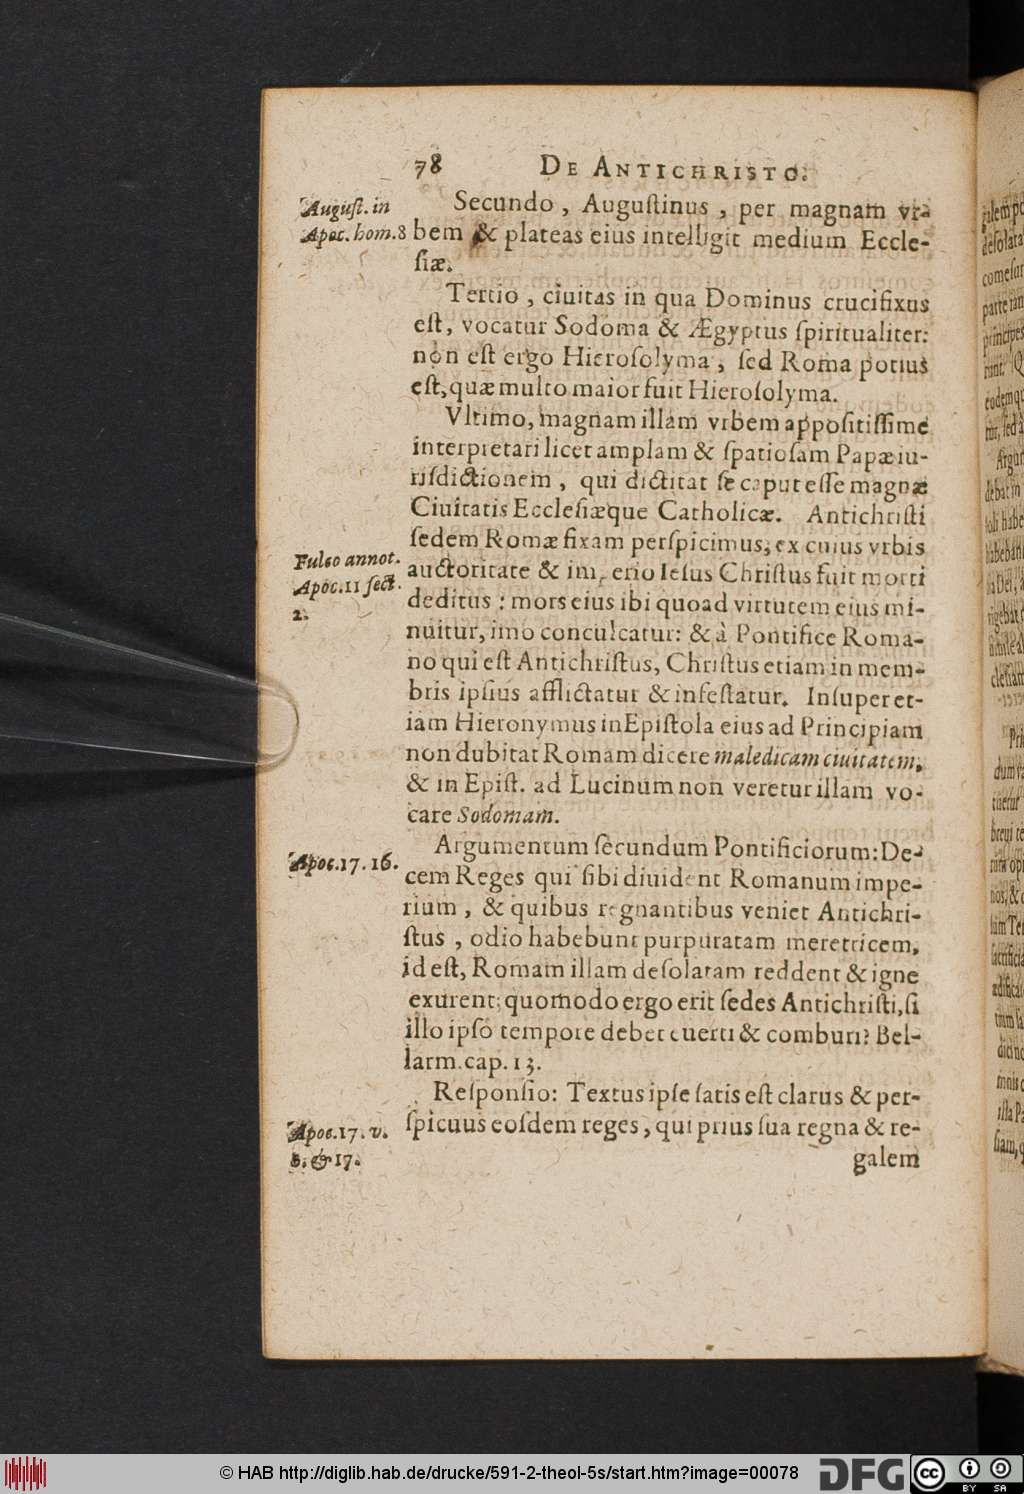 78 DE ANTICHRISTO.
Auguſt. in
Apoc. hom. 8
Secundo, Auguſtinus, per magnam vr-
bem & plateas eius intelligit medium Eccle-
ſiæ.
Tertio, ciuitas in qua Dominus crucifixus
eſt, vocatur Sodoma & Ægyptus ſpiritualiter:
non eſt ergo Hieroſolyma, ſed Roma potius
eſt, quæ multo maior fuit Hieroſolyma.
Vltimo, magnam illam vrbem appoſitiſſimè
interpretari licet amplam & ſpatioſam Papæ iu-
riſdictionem, qui dictitat ſe caput eſſe magnæ
Ciuitatis Eccleſiæque Catholicæ. Antichriſti
ſedem Romæ fixam perſpicimus, ex cuius vrbis
Fulco annot.
Apoc. 11 ſect.
2.
auctoritate & imperio Ieſus Chriſtus fuit morti
deditus: mors eius ibi quoad virtutem eius mi-
nuitur, imo conculcatur: & à Pontifice Roma-
no qui eſt Antichriſtus, Chriſtus etiam in mem-
bris ipſius afflictatur & infeſtatur. Inſuper et-
iam Hieronymus in Epiſtola eius ad Principiam
non dubitat Romam dicere maledicam ciuitatem,
& in Epiſt. ad Lucinum non veretur illam vo-
care Sodomam.
Apoc. 17. 16.
Argumentum ſecundum Pontificiorum: De-
cem Reges qui ſibi diuident Romanum impe-
rium, & quibus regnantibus veniet Antichri-
ſtus, odio habebunt purpuratam meretricem,
id eſt, Romam illam deſolatam reddent & igne
exurent; quomodo ergo erit ſedes Antichriſti, ſi
illo ipſo tempore debet euerti & comburi? Bel-
larm. cap. 13.
Reſponſio: Textus ipſe ſatis eſt clarus & per-
Apoc. 17. v.
& 17.
ſpicuus eoſdem reges, qui prius ſua regna & re-
galem
© HAB http://diglib.hab.de/drucke/591-2-theol-5s/start.htm?image=00078
DFG
cc BY SA